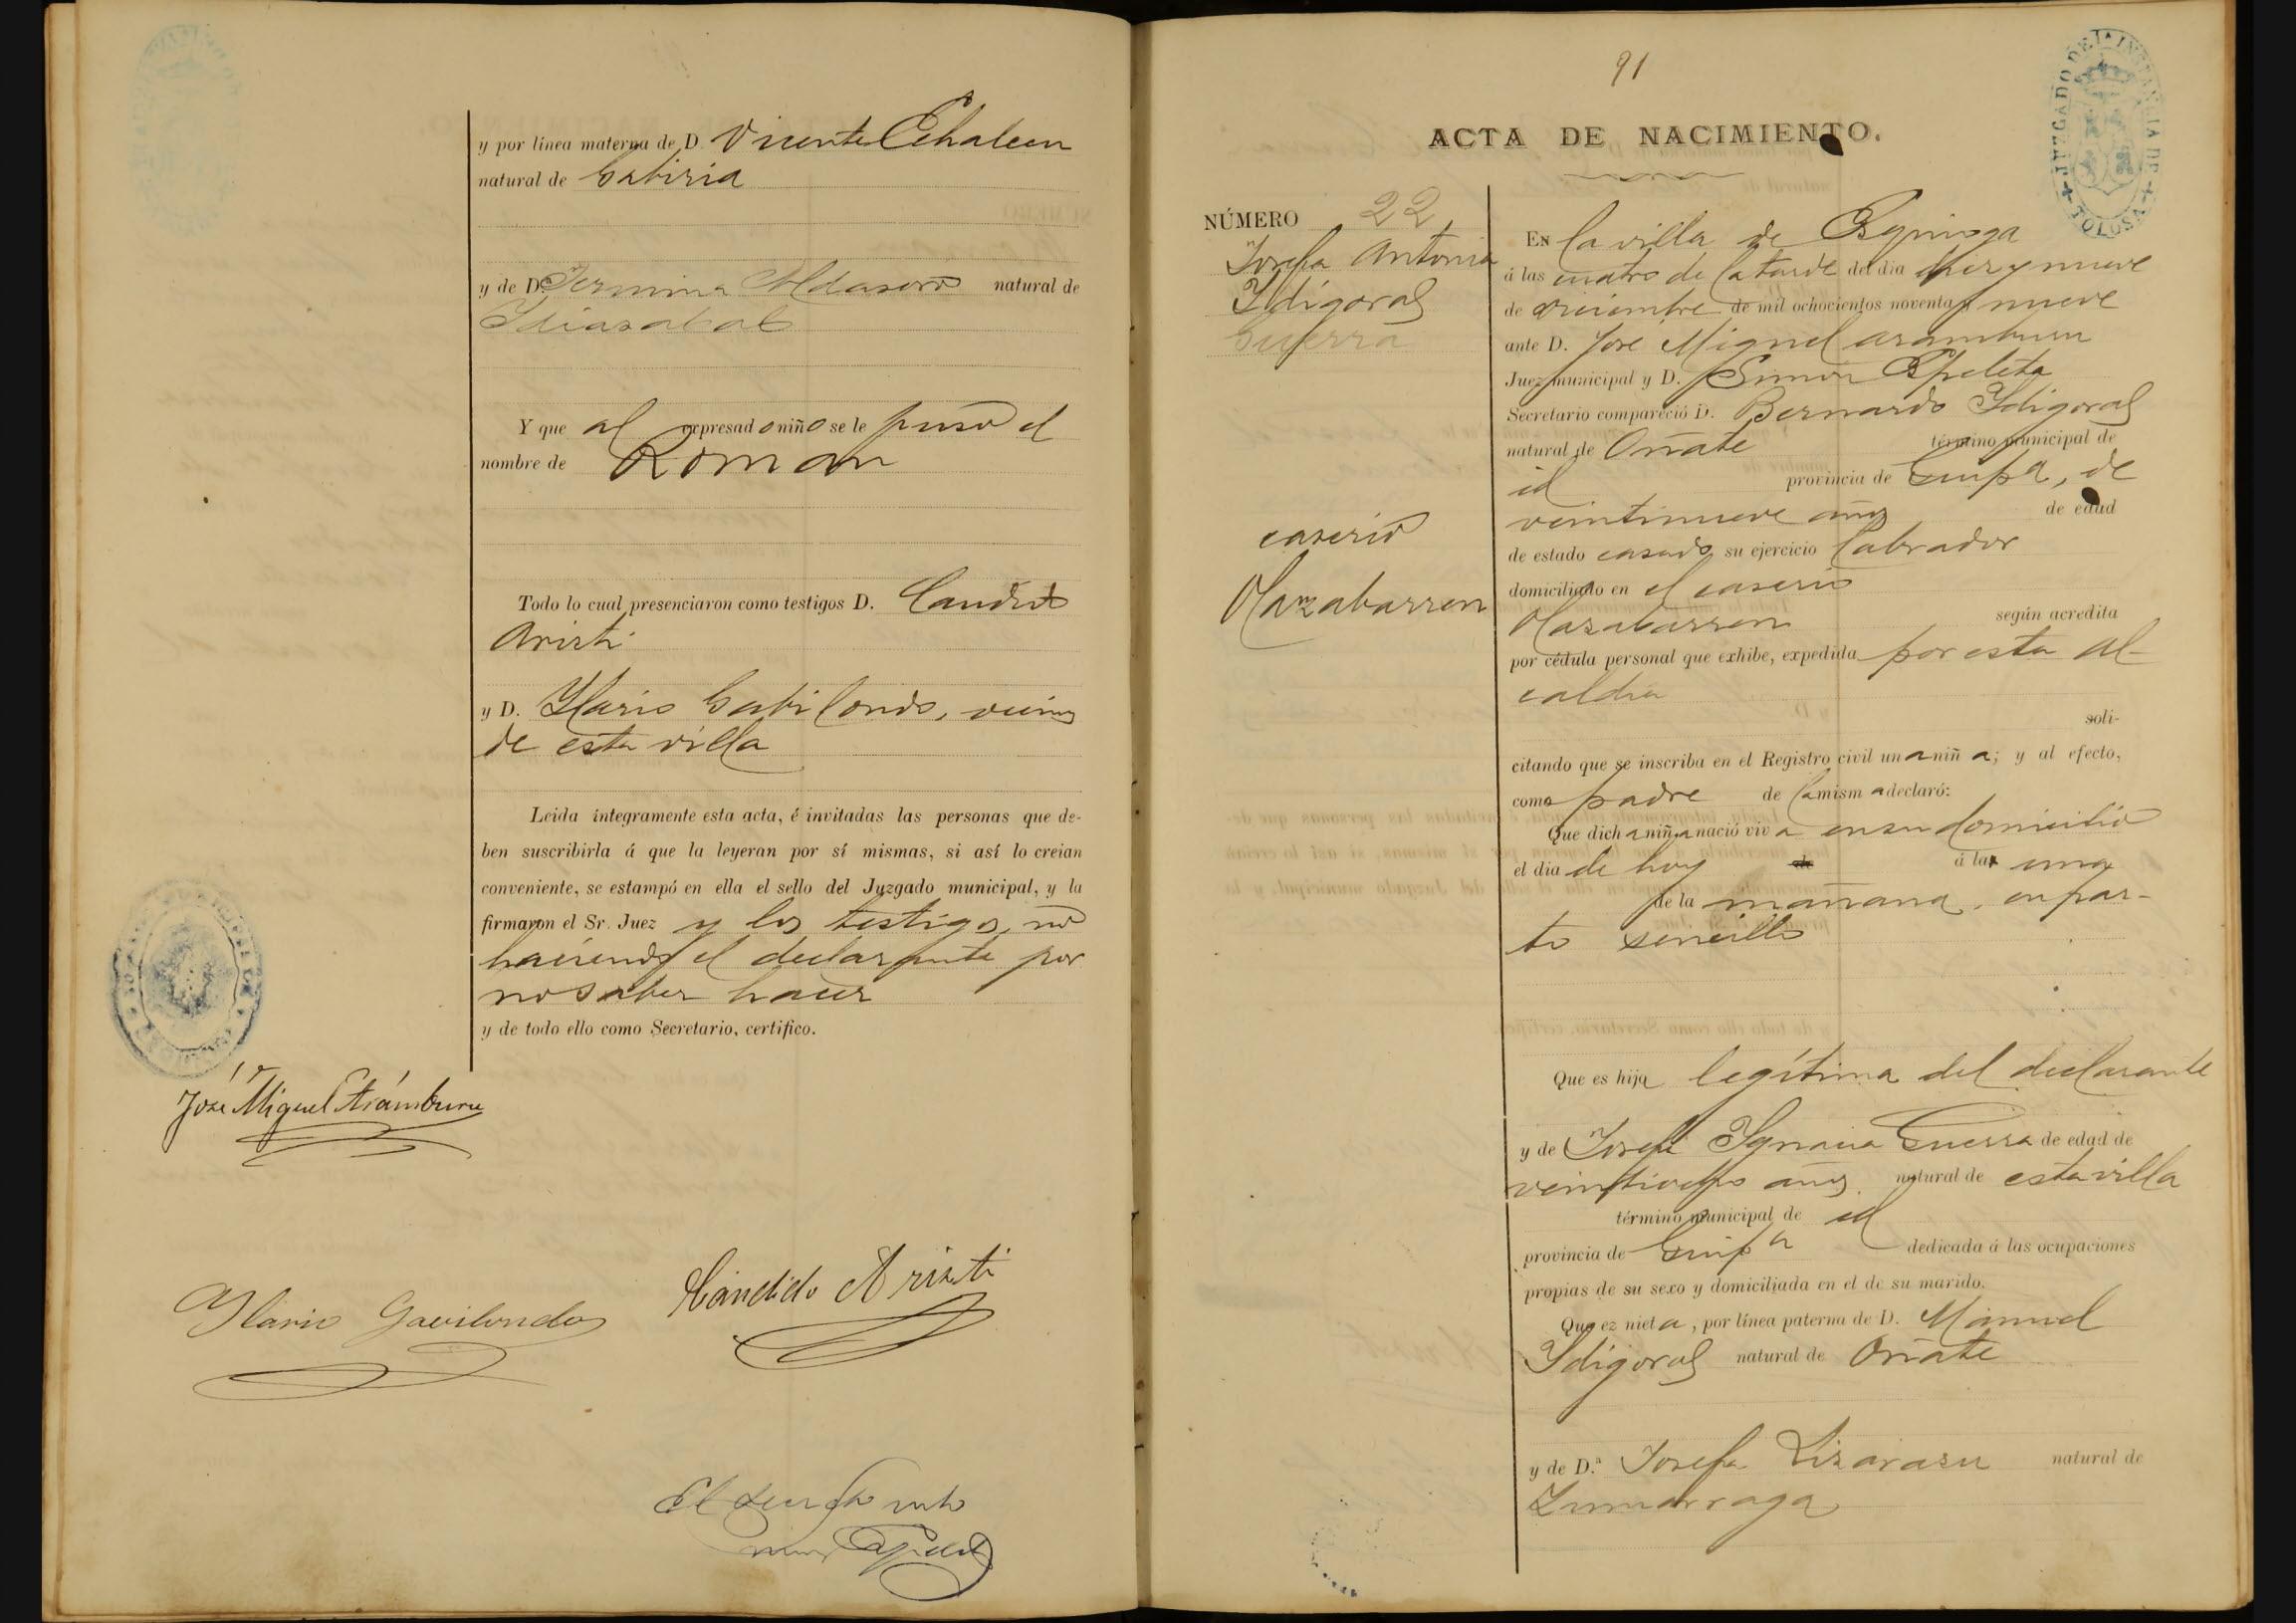 y por línea materna de D. Vicente Echalecu
natural de Gabiria
y de D.ª Fermina Aldasoro natural de
Idiazabal
Y que al expresado niño se le puso el
nombre de Roman
Todo lo cual presenciaron como testigos D. Candido
Aristi
y D. Ylario Gabilondo, vecinos
de esta villa
Leida íntegramente esta acta, é invitadas las personas que de-
ben suscribirla á que la leyeran por sí mismas, si así lo creian
conveniente, se estampó en ella el sello del Juzgado municipal, y la
firmaron el Sr. Juez y los testigos, no
haciendo el declarante por
no saber hacer
y de todo ello como Secretario, certifico.
José Miguel Arámburu
Ylario Gavilondo
Cándido Aristi
El
91
JUZGADO DE 1ª INSTANCIA DE TOLOSA
ACTA DE NACIMIENTO.
NÚMERO 22
Josefa Antonia
Ydígoras
Guerra
caserio
Olazabarren
En la villa de Ezquioga
á las cuatro de la tarde del dia diez y nueve
de diciembre de mil ochocientos noventa y nueve
ante D. José Miguel Aramburu
Juez municipal y D. Simon Ezpeleta
Secretario compareció D. Bernardo Ydigoras
natural de Oñate término municipal de
id provincia de Guipa, de
veintinueve años de edad
de estado casado su ejercicio labrador
domiciliado en el caserio
Olazabarren según acredita
por cédula personal que exhibe, expedida por esta al-
caldia
soli-
citando que se inscriba en el Registro civil una niña; y al efecto,
como padre de la misma declaró:
Que dicha niña nació viva en su domicilio
el dia de hoy de á la una
de la mañana, en par-
to sencillo
Que es hija legítima del declarante
y de Josefa Ygnacia Guerra de edad de
veintiocho años natural de esta villa
término municipal de id
provincia de Guipa dedicada á las ocupaciones
propias de su sexo y domiciliada en el de su marido.
Que ez nieta, por línea paterna de D. Manuel
Ydígoras natural de Oñate
y de D.ª Josefa Lizarazu natural de
Zumarraga